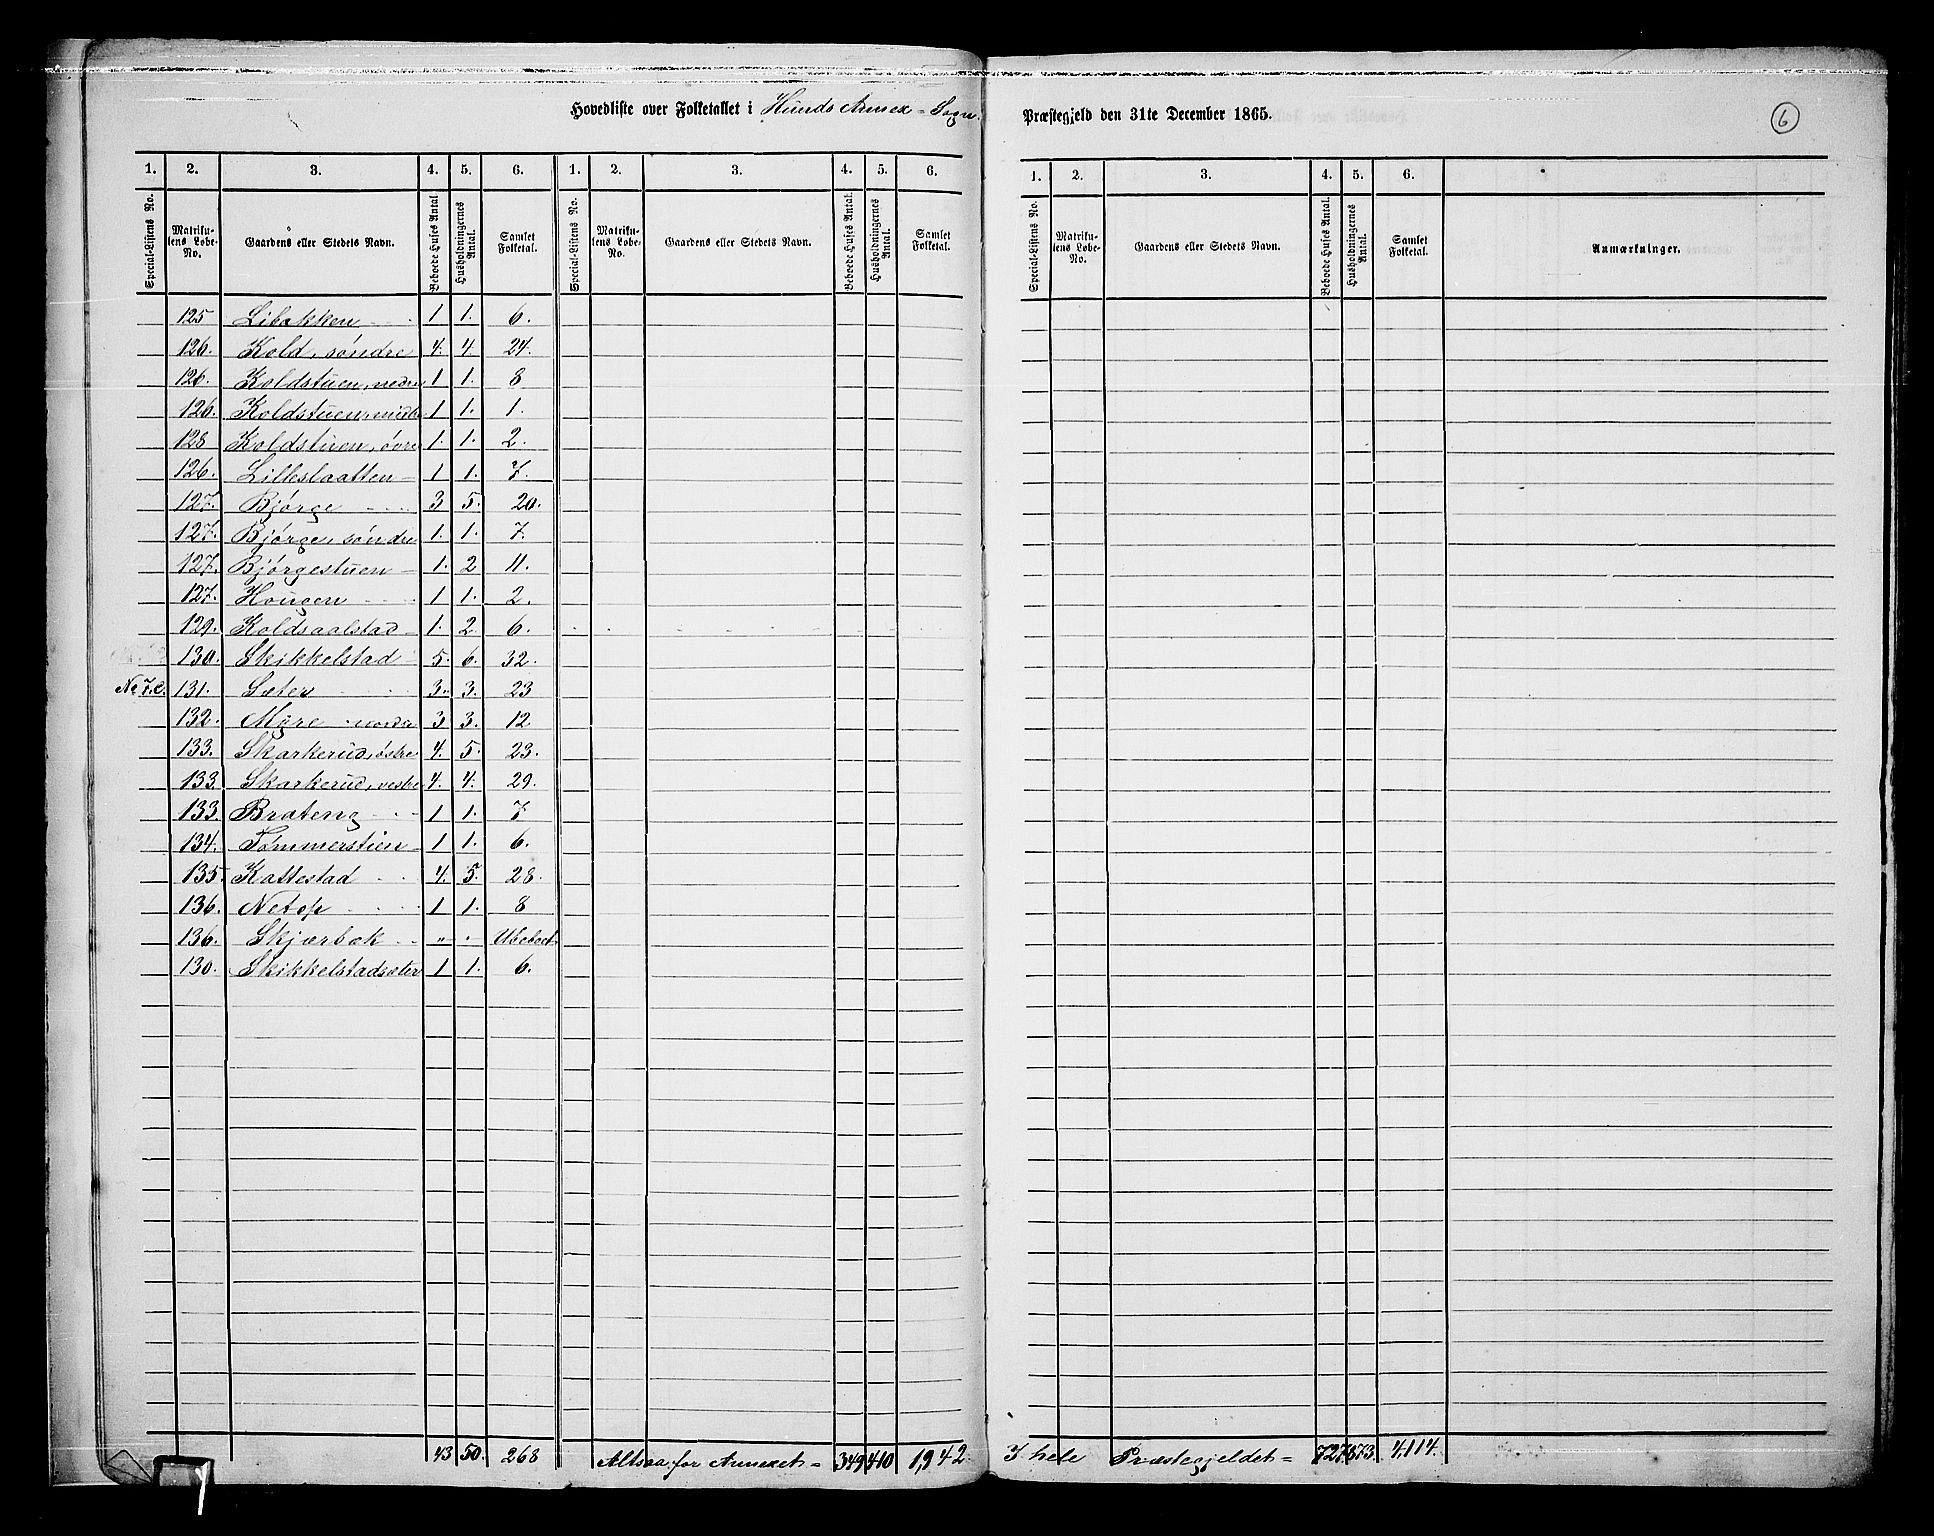 Hovedliste over Folketallet i Hunds Annex - Sogn.
Præstegjeld den 31te December 1865.
6
1. 2. 3. 4. 5. 6. 1. 2. 3. 4. 5. 6.
Special-Listens No. Matrikulens Løbe-No. Gaardens eller Stedets Navn. Beboede Huses Antal Husholdningernes Antal. Samlet Folketal. Special-Listens No. Matrikulens Løbe-No. Gaardens eller Stedets Navn. Beboede Huses Antal. Husholdningernes Antal. Samlet Folketal.
125 Libakken 1 1. 6.
126. Kold, søndre 4. 4. 24.
126. Koldstuen, nedre 1 1. 8
126. Koldstuen, midt 1 1. 1.
128 Koldstuen, øvre 1. 1. 2.
126. Lilleslaatten 1 1. 7.
127. Bjørge 3 5. 20.
127. Bjørge, søndre 1. 1. 7.
127. Bjørgestuen 1. 2 11.
127. Hougen 1 1. 2.
129. Koldsaalstad 1. 2. 6.
130. Skikkelstad 5. 6. 32.
No 7.c. 131. Sæter 3. 3. 23
132. Myre nordre 3 3. 12
133. Skarkerud, østre 4. 5. 23.
133. Skarkerud, vestre 4. 4. 29.
133 Brateng 1 1. 7
134. Tømmerstien 1 1. 6.
135 Kattestad 4. 5. 28.
136. Netop 1 1. 8
136. Skjærbæk " " Ubeboet
130. Skikkelstadsæter 1 1. 6.
43 50. 268
Altsaa for Annexet = 349 410 1,942.
1. 2. 3. 4. 5. 6.
Special-Listens No. Matrikulens Løbe-No. Gaardens eller Stedets Navn. Beboede Huses Antal. Husholdningernes Antal. Samlet Folketal. Anmærkninger.
I hele Præstegjeldet = 727. 873. 4.114.